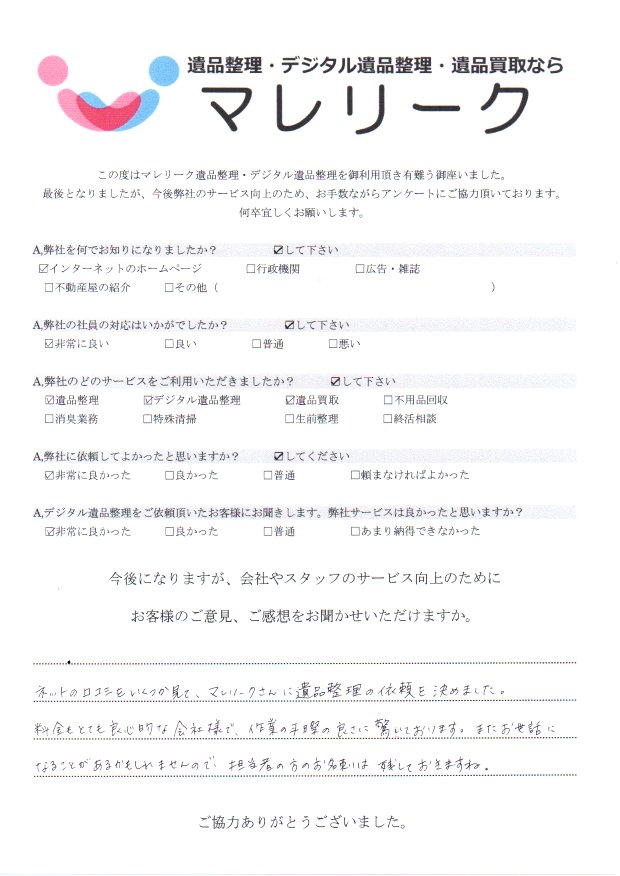 遺品整理・デジタル遺品整理・遺品買取なら
マレリーク
この度はマレリーク遺品整理・デジタル遺品整理を御利用頂き有難う御座いました。
最後となりましたが、今後弊社のサービス向上のため、お手数ながらアンケートにご協力頂いております。
何卒宜しくお願いします。
A,弊社を何でお知りになりましたか? ☑して下さい
☑インターネットのホームページ □行政機関 □広告・雑誌
□不動産屋の紹介 □その他( )
A,弊社の社員の対応はいかがでしたか? ☑して下さい
☑非常に良い □良い □普通 □悪い
A,弊社のどのサービスをご利用いただきましたか? ☑して下さい
☑遺品整理 ☑デジタル遺品整理 ☑遺品買取 □不用品回収
□消臭業務 □特殊清掃 □生前整理 □終活相談
A,弊社に依頼してよかったと思いますか? ☑してください
☑非常に良かった □良かった □普通 □頼まなければよかった
A,デジタル遺品整理をご依頼頂いたお客様にお聞きします。弊社サービスは良かったと思いますか?
☑非常に良かった □良かった □普通 □あまり納得できなかった
今後になりますが、会社やスタッフのサービス向上のために
お客様のご意見、ご感想をお聞かせいただけますか。
ネットの口コミをいくつか見て、マレリークさんに遺品整理の依頼を決めました。
料金もとても良心的な会社様で、作業の手際の良さに驚いております。またお世話に
なることがあるかもしれませんので、担当者の方のお名刺は残しておきますね。
ご協力ありがとうございました。